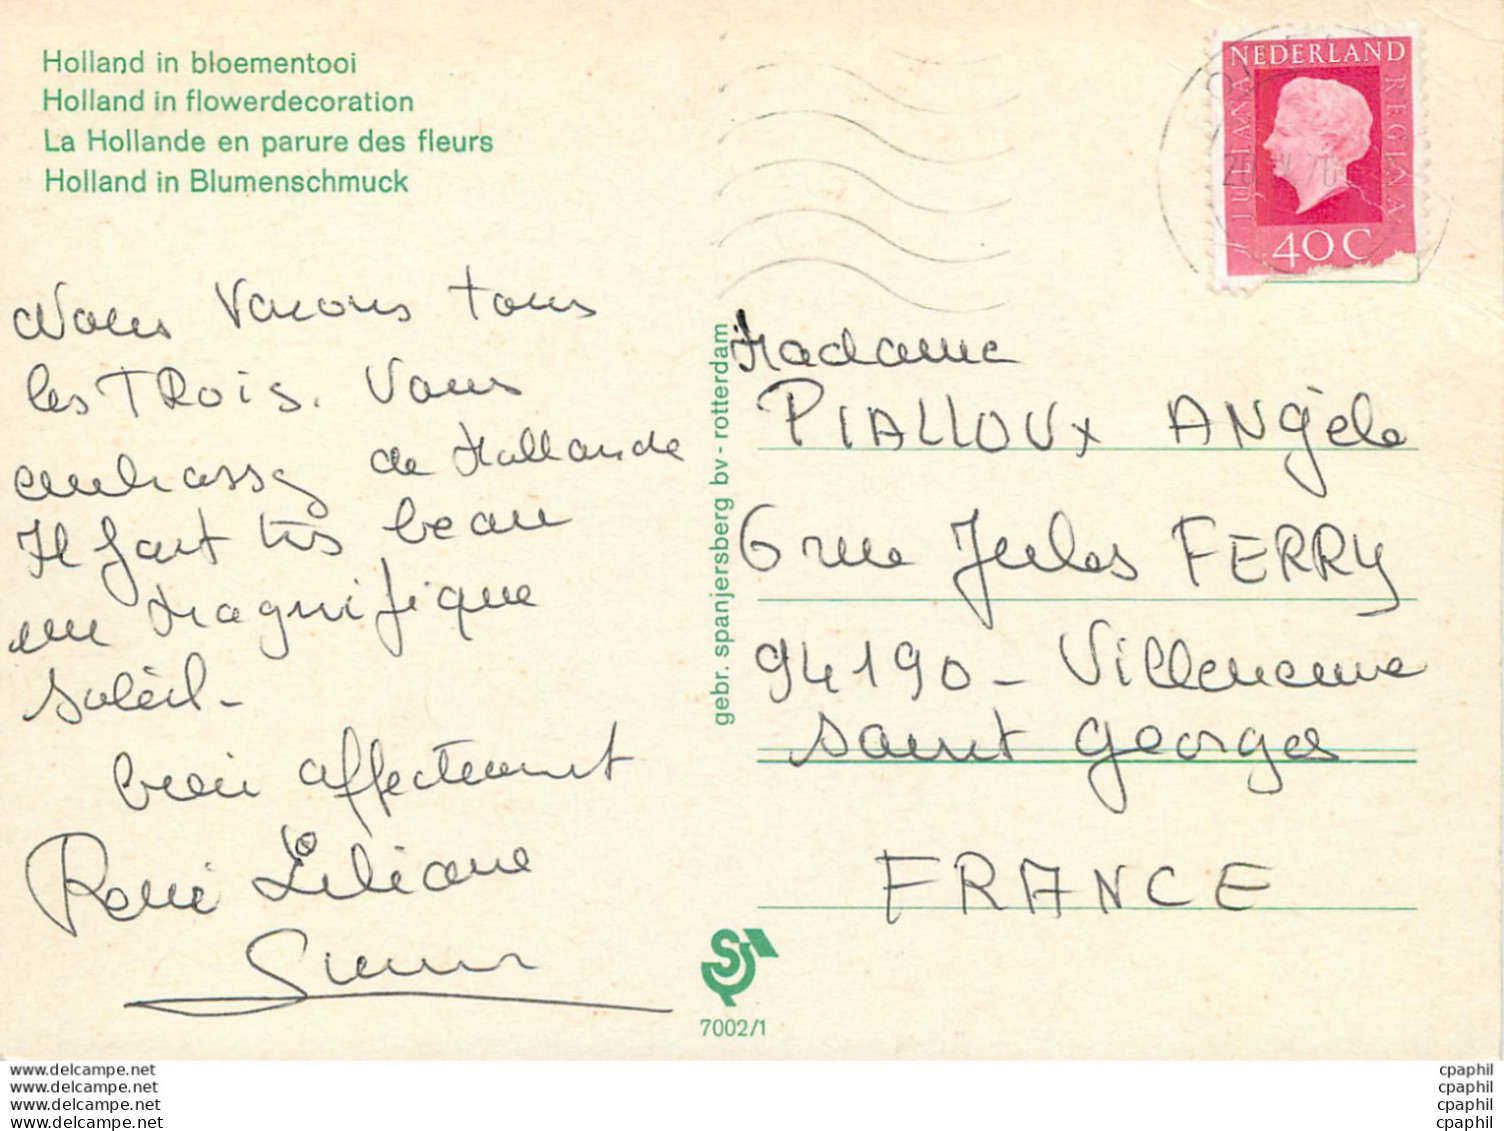 Holland in bloementooi
Holland in flowerdecoration
La Hollande en parure des fleurs
Holland in Blumenschmuck
NEDERLAND
JULIANA
REGINA
40C
Nous Vanons tous
les TROIS. Vous
embrassez de Hollande
Il fait très beau
un Magnifique
soleil-
bien affectement
René Liliane
gebr. spanjersberg bv - rotterdam
Madame
PIALLOUX ANgèle
6 rue Jules FERRY
94190 - Villeneuve
saint georges
FRANCE
7002/1
www.delcampe.net
www.delcampe.net
www.delcampe.net
www.delcampe.net
cpaphil
cpaphil
cpaphil
cpaphil